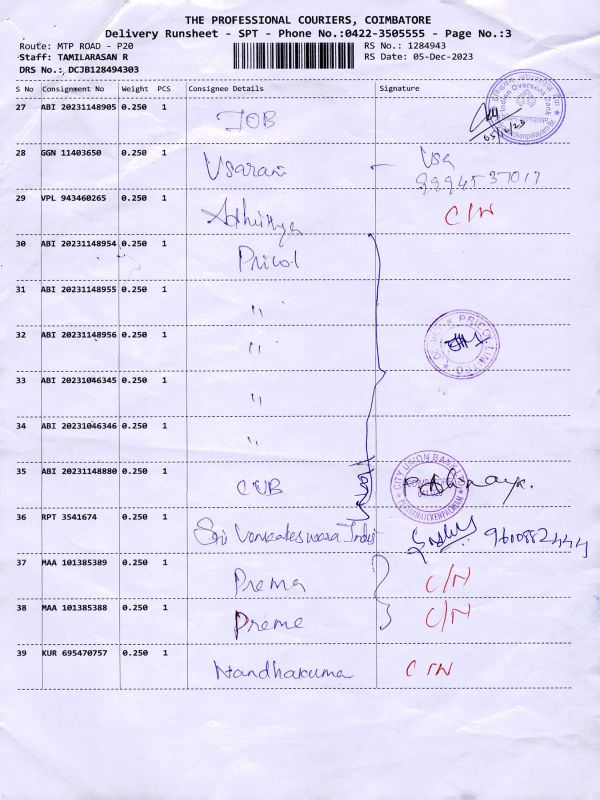 THE PROFESSIONAL COURIERS, COIMBATORE
Delivery Runsheet - SPT - Phone No.:0422-3505555 - Page No.:3
Route: MTP ROAD - P20 RS No.: 1284943
Staff: TAMILARASAN R RS Date: 05-Dec-2023
DRS No.: DCJB128494303
S No Consignment No Weight PCS Consignee Details Signature
27 ABI 20231148905 0.250 1 IOB 05/12/23
Indian Overseas Bank
28 GGN 11403650 0.250 1 Usarani Usa
9994537017
29 VPL 943460265 0.250 1 C/N
30 ABI 20231148954 0.250 1 Pricol
31 ABI 20231148955 0.250 1 "
32 ABI 20231148956 0.250 1 "
PRICOL LIMITED
33 ABI 20231046345 0.250 1 "
34 ABI 20231046346 0.250 1 "
35 ABI 20231148880 0.250 1 CUB
CITY UNION BANK LTD
36 RPT 3541674 0.250 1 Sri Venkateswara Indus 9600882444
37 MAA 101385389 0.250 1 Prema C/N
38 MAA 101385388 0.250 1 Preme C/N
39 KUR 695470757 0.250 1 Nandhakuma C/N